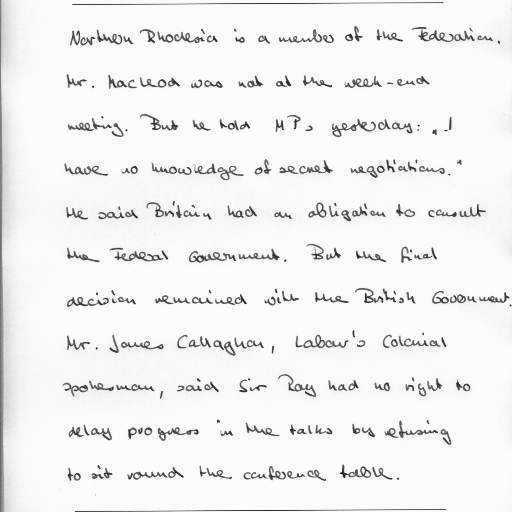 Northern Rhodesia is a member of the Federation.
Mr. Macleod was not at the week-end
meeting. But he told MPs yesterday: "I
have no knowledge of secret negotiations."
He said Britain had an obligation to consult
the Federal Government. But the final
decision remained with the British Government.
Mr. James Callaghan, Labour's Colonial
spokesman, said Sir Roy had no right to
delay progress in the talks by refusing
to sit round the conference table.